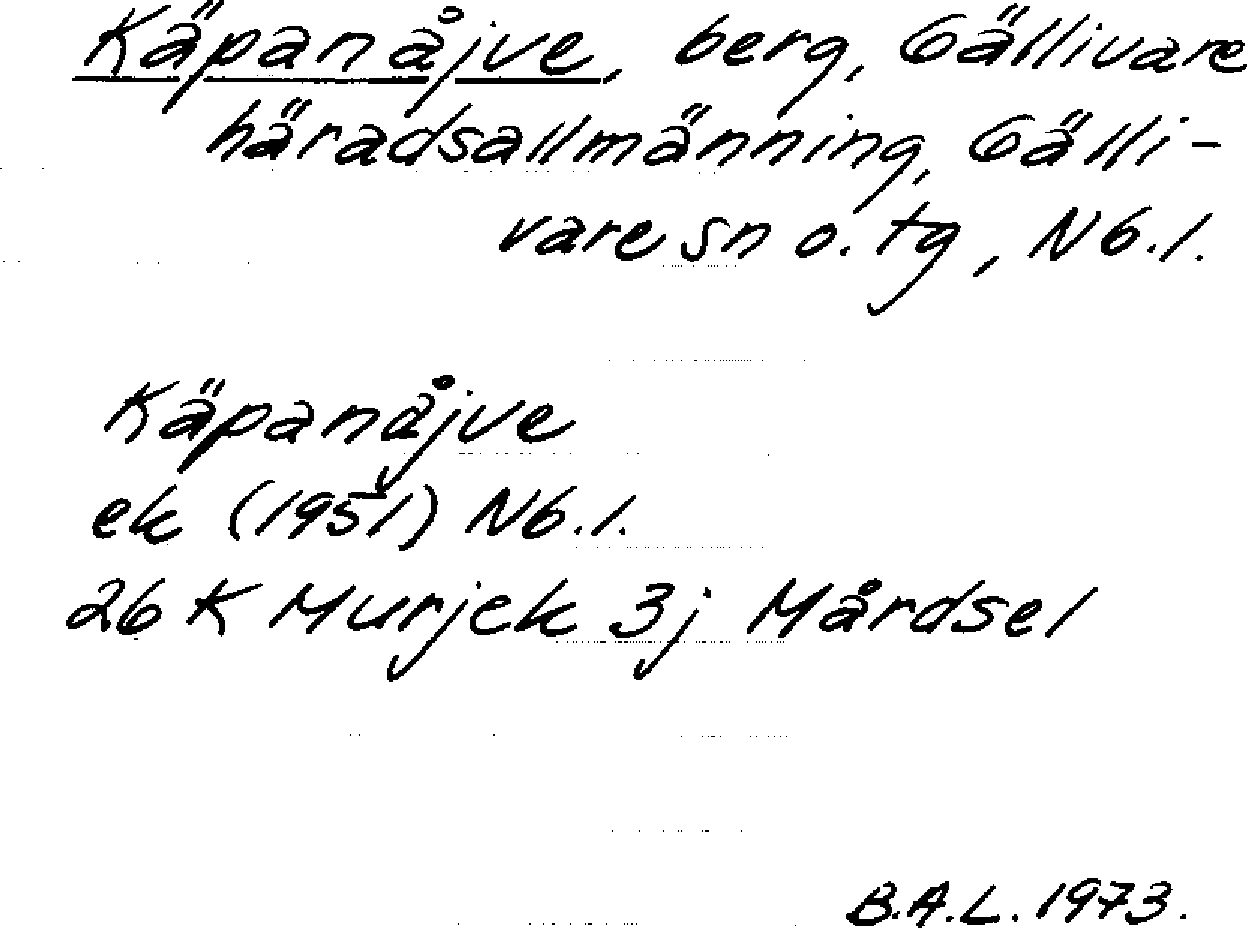 Käpanåjve, berg, Gällivare
häradsallmänning, Gälli-
vare sn o. tg, Nb.l.
Käpanåjve
ek (1951) Nb.l.
26 K Murjek 3j Mårdsel
B.A.L. 1973.